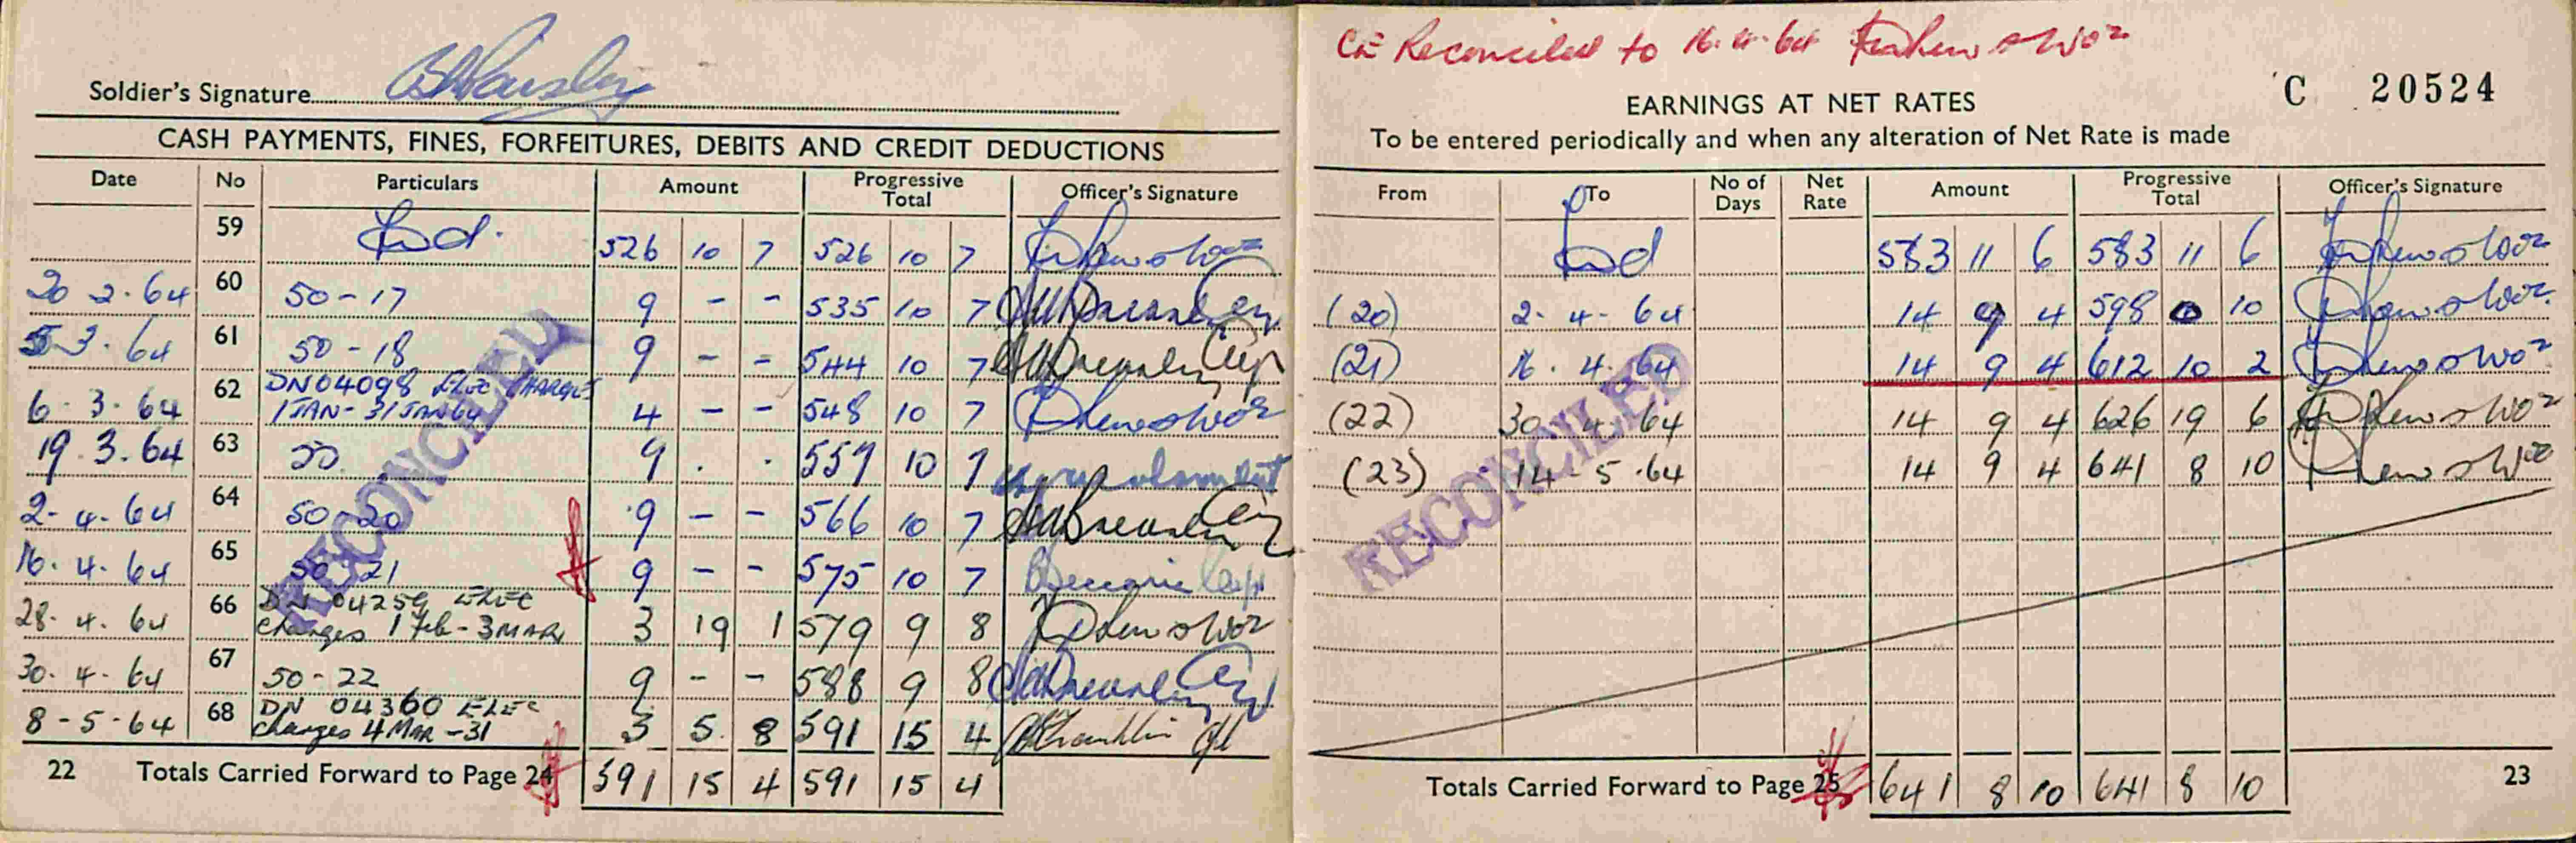 Soldier's Signature
CASH PAYMENTS, FINES, FORFEITURES, DEBITS AND CREDIT DEDUCTIONS
Date No Particulars Amount Progressive Total Officer's Signature
59 Fwd. 526 10 7 526 10 7
20 2.64 60 50-17 9 - - 535 10 7
5 3.64 61 50-18 9 - - 544 10 7
6.3.64 62 DN04098 ELEC CHARGES 1 JAN-31 JAN 64 4 - - 548 10 7
19.3.64 63 50 9 . . 557 10 7
2-4.64 64 50-20 9 - - 566 10 7
16.4.64 65 50 21 9 - - 575 10 7
28.4.64 66 DN 04259 ELEC Charges 1 Feb-3 MAR 3 19 1 579 9 8
30.4.64 67 50-22 9 - - 588 9 8
8-5-64 68 DN 04360 ELEC Charges 4 MAR-31 3 5 8 591 15 4
22 Totals Carried Forward to Page 24 591 15 4 591 15 4
RECONCILED
Reconciled to 16.4.64
C 20524
EARNINGS AT NET RATES
To be entered periodically and when any alteration of Net Rate is made
From To No of Days Net Rate Amount Progressive Total Officer's Signature
Fwd 583 11 6 583 11 6
(20) 2-4-64 14 9 4 598 0 10
(21) 16.4.64 14 9 4 612 10 2
(22) 30 4.64 14 9 4 626 19 6
(23) 14-5.64 14 9 4 641 8 10
RECONCILED
Totals Carried Forward to Page 25 641 8 10 641 8 10 23